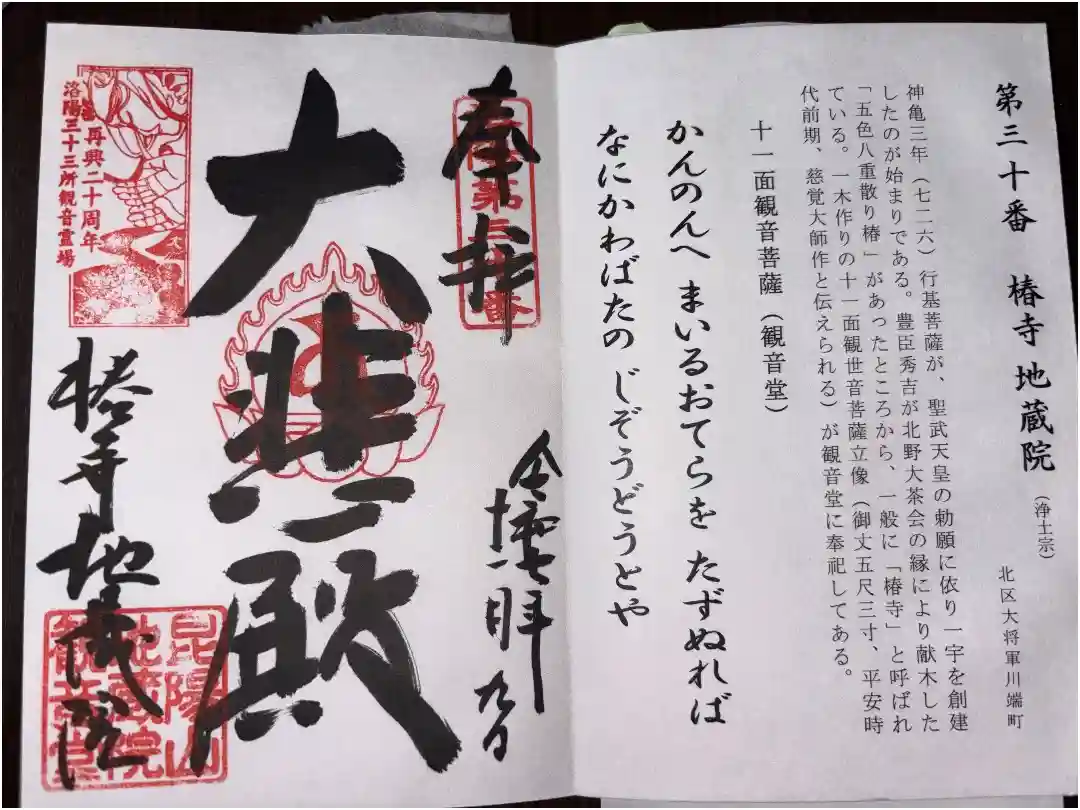 第三十番　椿寺地蔵院
（浄土宗）
北区大将軍川端町
神亀三年（七二六）行基菩薩が、聖武天皇の勅願に依り一宇を創建
したのが始まりである。豊臣秀吉が北野大茶会の縁により献木した
「五色八重散り椿」があったところから、一般に「椿寺」と呼ばれ
ている。一木作りの十一面観世音菩薩立像（御丈五尺三寸、平安時
代前期、慈覚大師作と伝えられる）が観音堂に奉祀してある。
十一面観音菩薩（観音堂）
かんのんへ　まいるおてらを　たずぬれば
なにかわばたの　じぞうどうとや
奉拝
大悲殿
再興二十周年
洛陽三十三所観音霊場
椿寺地蔵院
昆陽山
地蔵院
観音堂